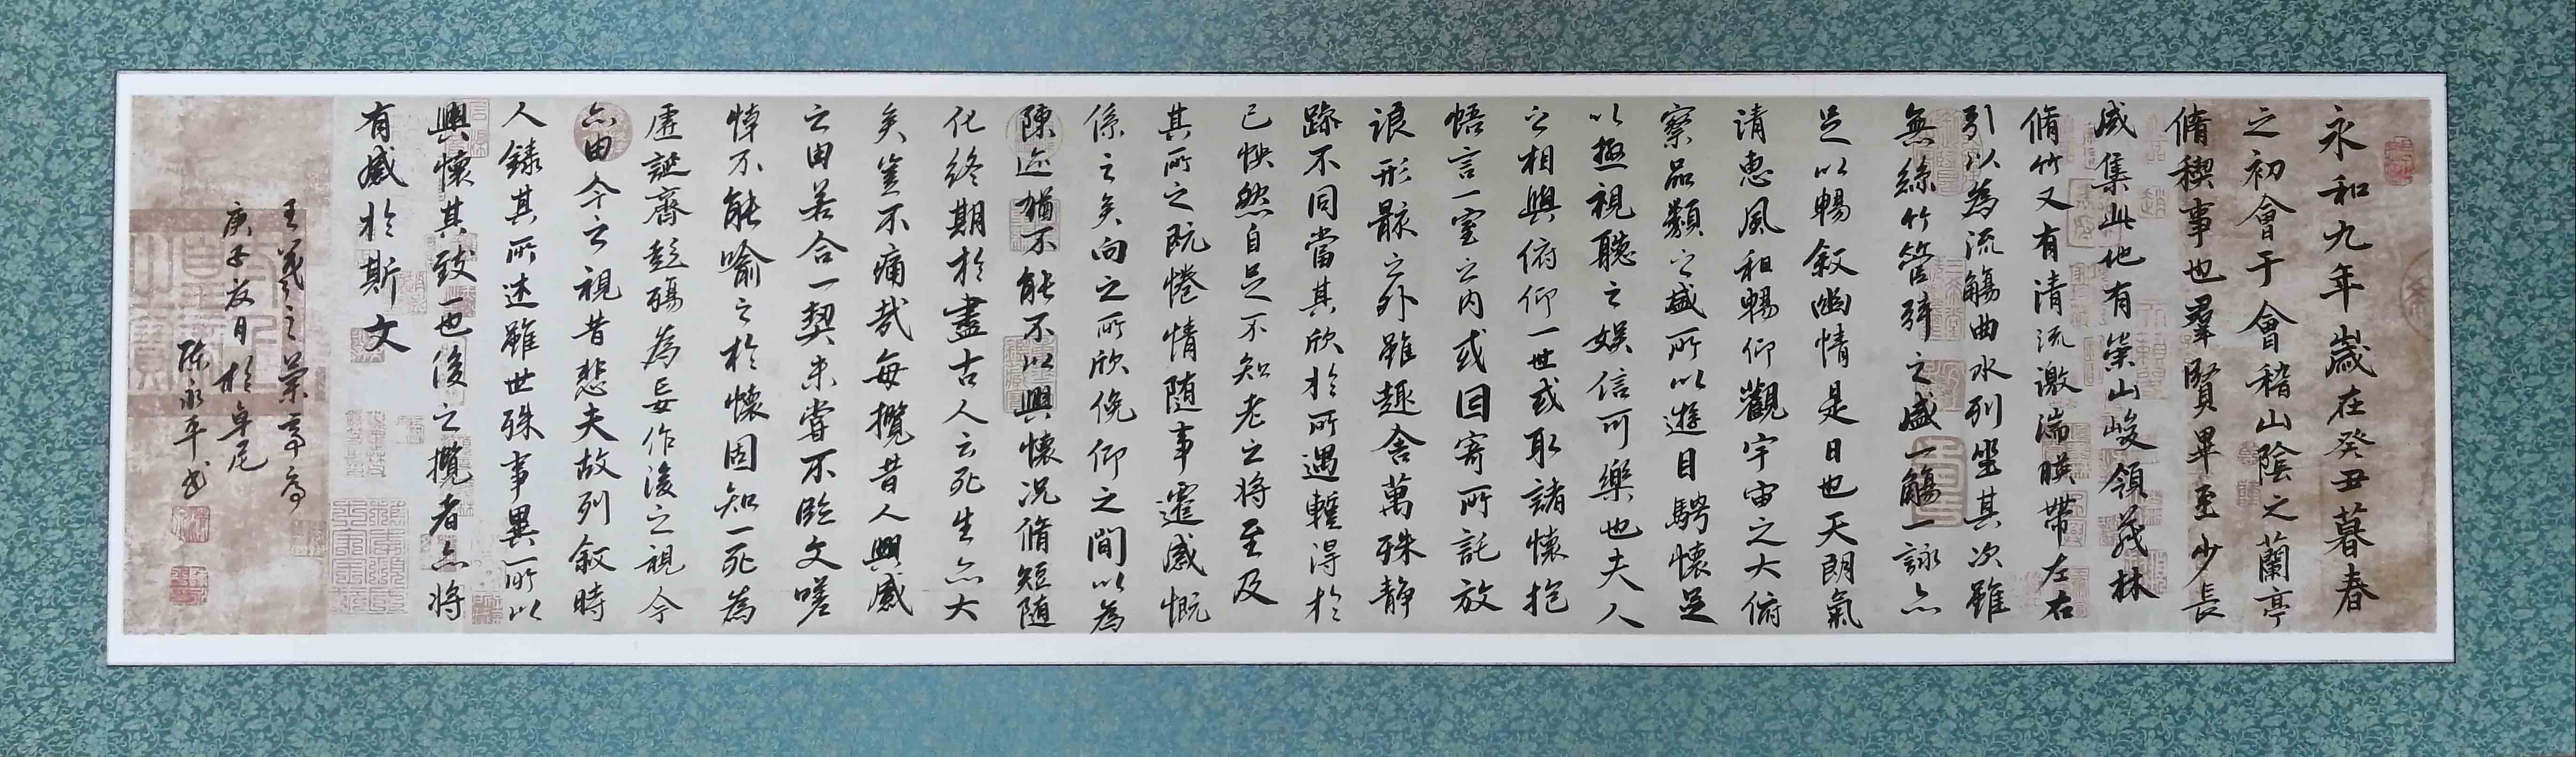 永和九年歲在癸丑暮春
之初會于會稽山陰之蘭亭
脩稧事也羣賢畢至少長
咸集此地有崇山峻領茂林
脩竹又有清流激湍暎帶左右
引以為流觴曲水列坐其次雖
無絲竹管絃之盛一觴一詠亦
足以暢叙幽情是日也天朗氣
清惠風和暢仰觀宇宙之大俯
察品類之盛所以遊目騁懷足
以極視聽之娛信可樂也夫人
之相與俯仰一世或取諸懷抱
悟言一室之內或因寄所託放
浪形骸之外雖趣舍萬殊静
躁不同當其欣於所遇蹔得於
己怏然自足不知老之將至及
其所之既惓情隨事遷感慨
係之矣向之所欣俛仰之間以為
陳迹猶不能不以興懷況脩短隨
化終期於盡古人云死生亦大
矣豈不痛哉每攬昔人興感
之由若合一契未嘗不臨文嗟
悼不能喻之於懷固知一死為
虛誕齊彭殤為妄作後之視今
亦由今之視昔悲夫故列叙時
人錄其所述雖世殊事異所以
興懷其致一也後之攬者亦將
有感於斯文
王羲之蘭亭序
庚子夏日於
陳永平书